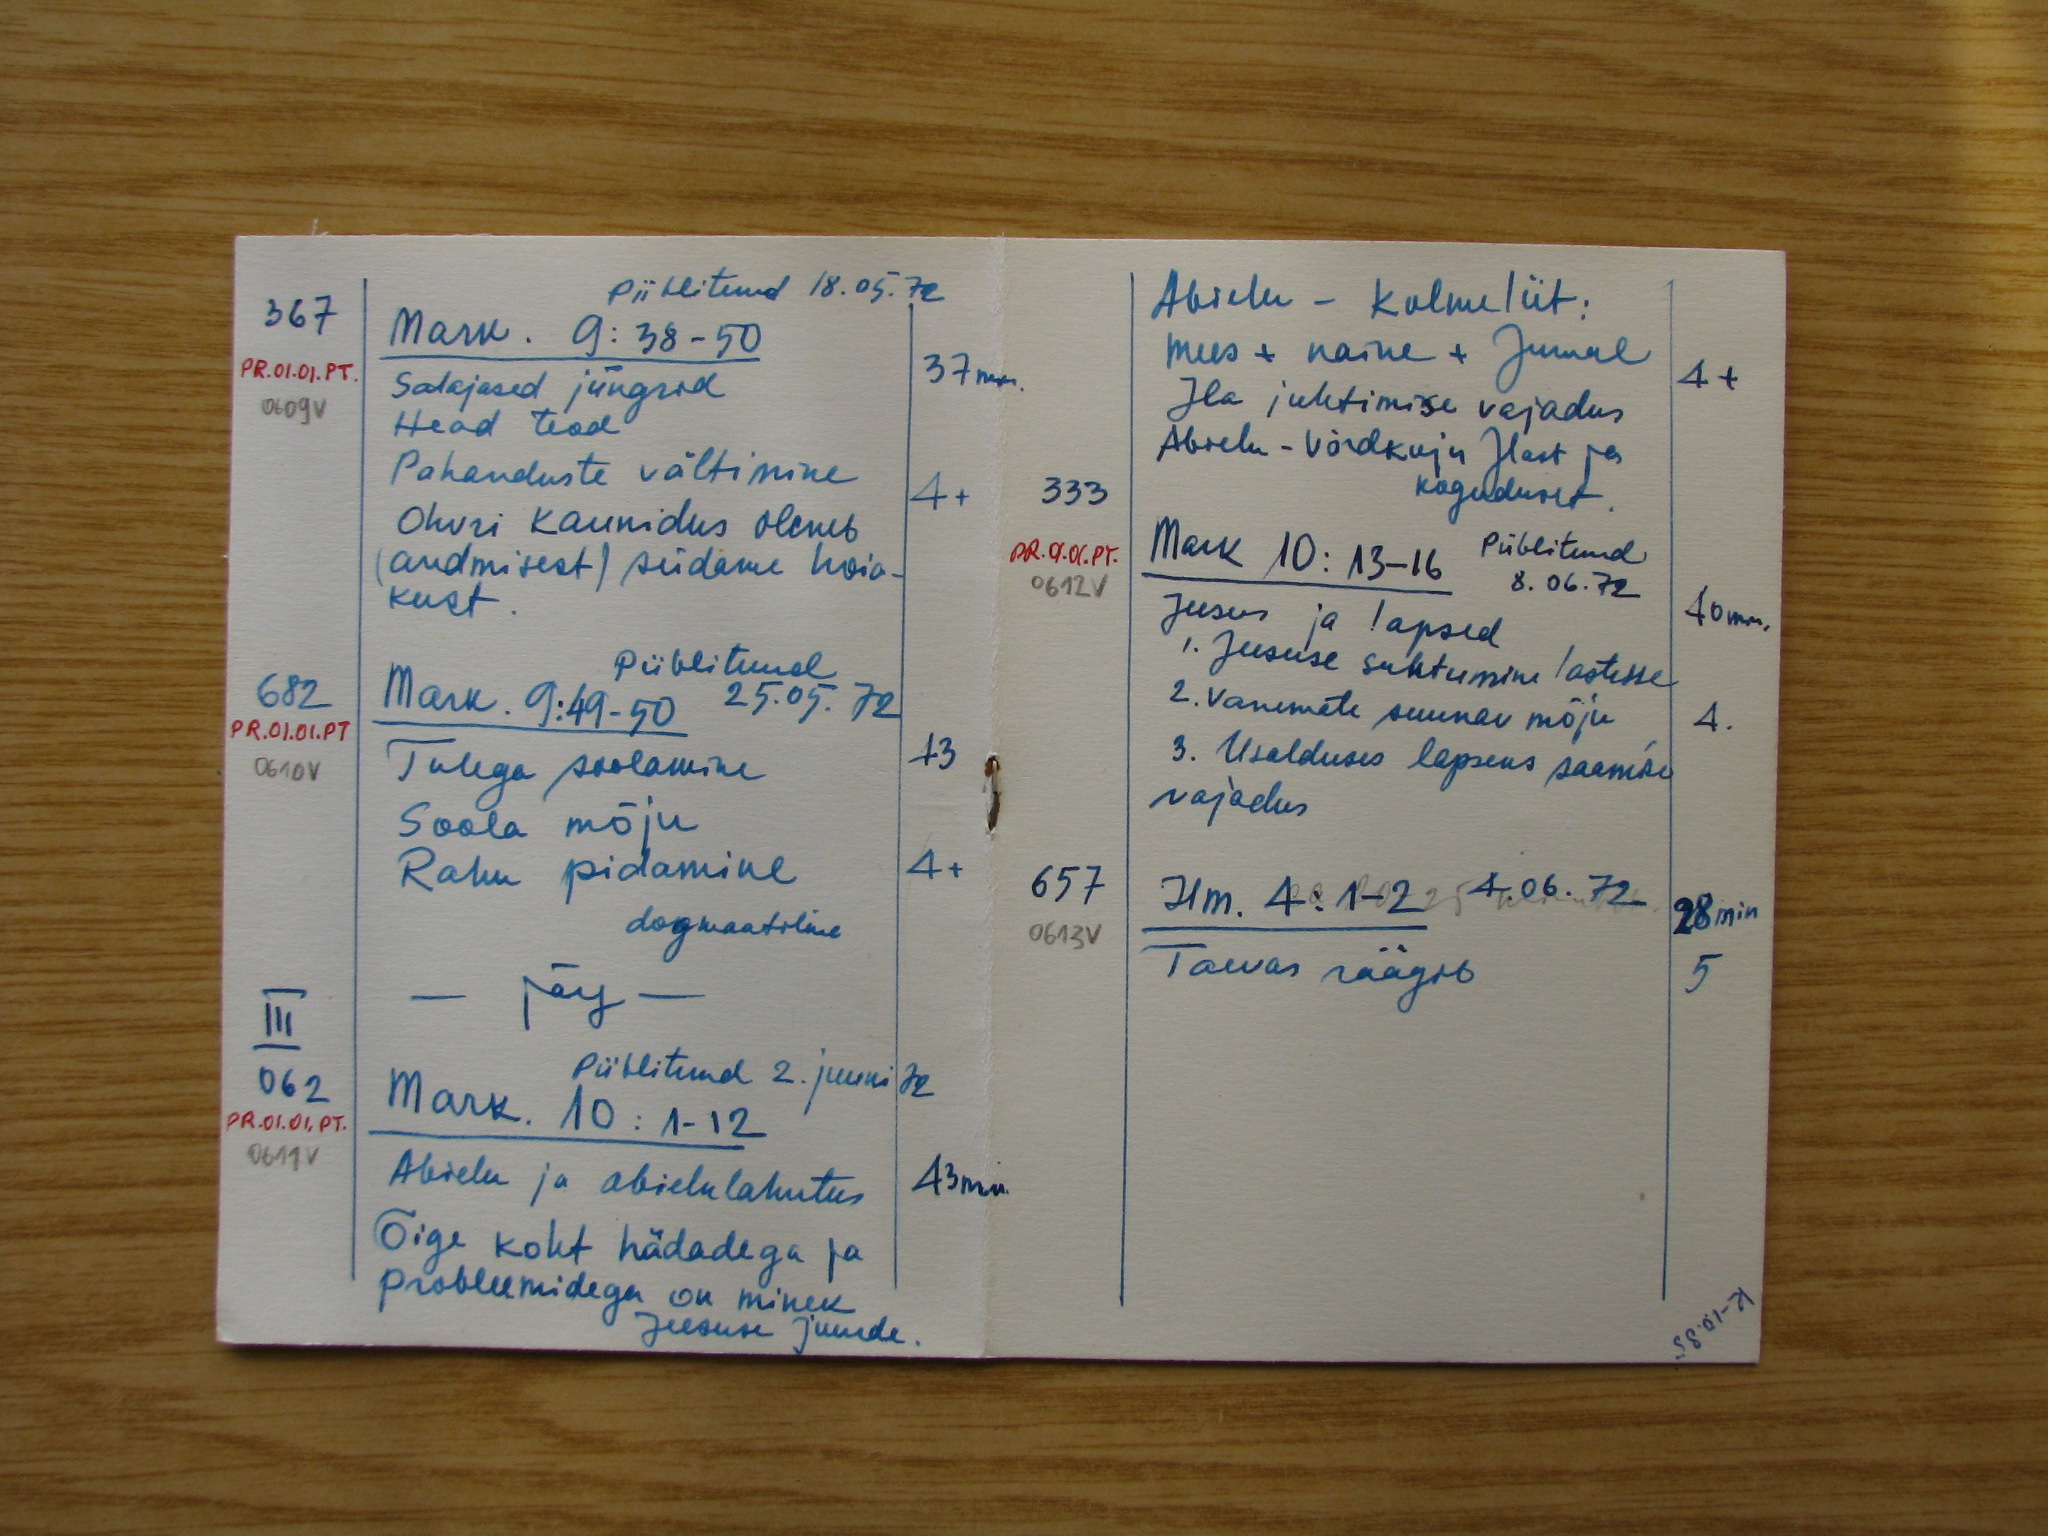 Piiblitund 18.05.72
367 Mark. 9:38-50
PR.01.01.PT. 37 min.
0609V Salajased jüngrid
Head teod
Pahanduste vältimine 4+
Ohvri kaunidus oleneb
(andmisest) südame hoia-
kust.
Piiblitund
682 Mark. 9:49-50 25.05.72
PR.01.01.PT
0610V Tulega soolamine +3
Soola mõju
Rahu pidamine 4+
dogmaatiline
— järg —
III
Piiblitund 2. juuni 72
062 Mark. 10:1-12
PR.01.01.PT.
0611V Abielu ja abielulahutus 43 min.
Õige koht hädadega ja
probleemidega on minek
Jeesuse juurde.
Abielu - Kolmeliit:
mees + naine + Jumal 4+
Jla juhtimise vajadus
Abielu - võrdkuju Jlast ja
333 kogudusest.
Mark 10:13-16 Piiblitund
PR.01.01.PT. 8.06.72
0612V Jeesus ja lapsed 40 min.
1. Jeesuse suhtumine lastesse
2. Vanemate suunav mõju 4.
3. Usalduses lapseks saamise
vajadus
657 Ilm. 4:1-2 4.06.72 28 min
0613V Taevas räägib 5
K-10.85